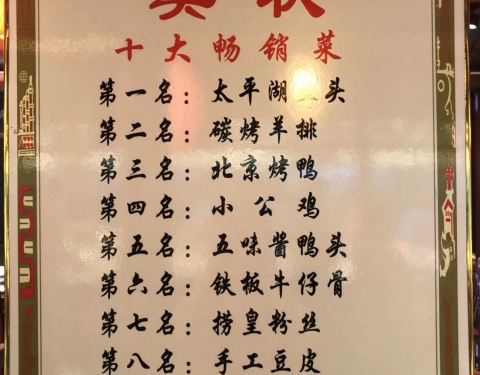 奖状
十大畅销菜
第一名：太平湖头
第二名：碳烤羊排
第三名：北京烤鸭
第四名：小公鸡
第五名：五味酱鸭头
第六名：铁板牛仔骨
第七名：捞皇粉丝
第八名：手工豆皮